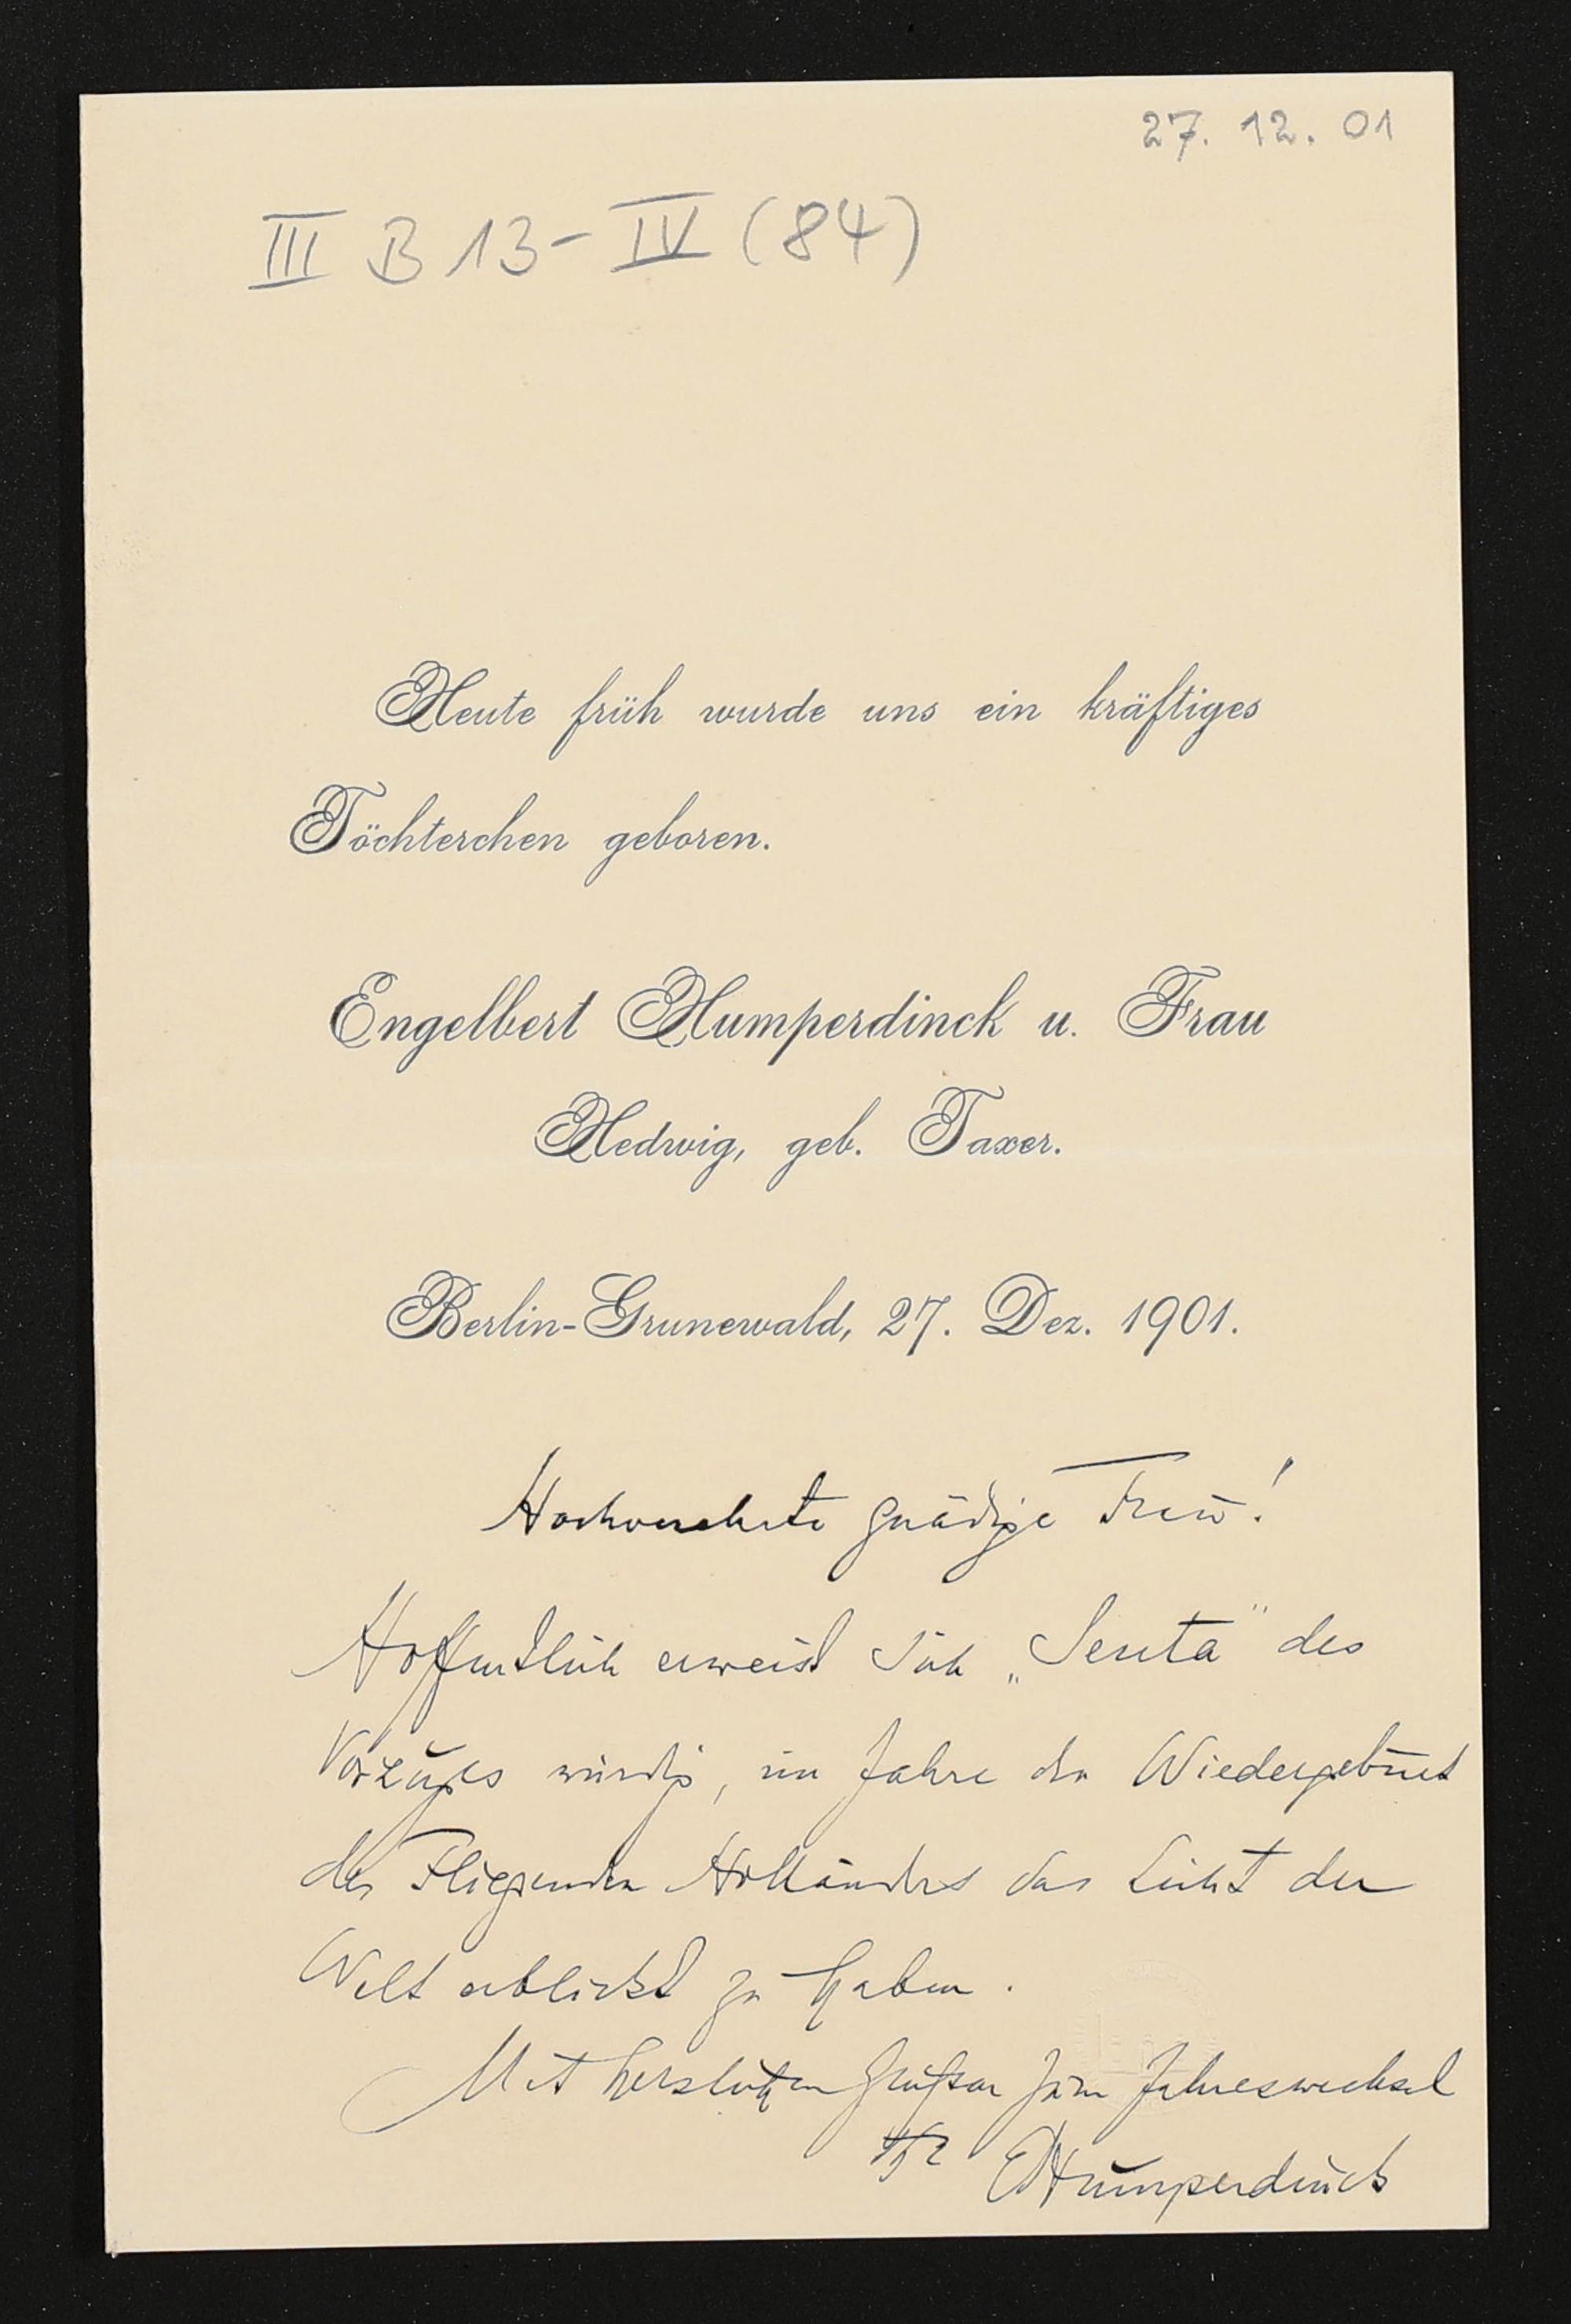 27. 12. 01
III B 13 - IV (84)
Heute früh wurde uns ein kräftiges
Töchterchen geboren.
Engelbert Humperdinck u. Frau
Hedwig, geb. Taxer.
Berlin-Grunewald, 27. Dez. 1901.
Hochverehrte gnädige Frau!
Hoffentlich erweist sich „Senta" des
Vorzuges würdig, im Jahre der Wiedergeburt
des Fliegenden Holländers das Licht der
Welt erblickt zu haben.
Mit herzlichen Grüßen zum Jahreswechsel
Ihr EHumperdinck